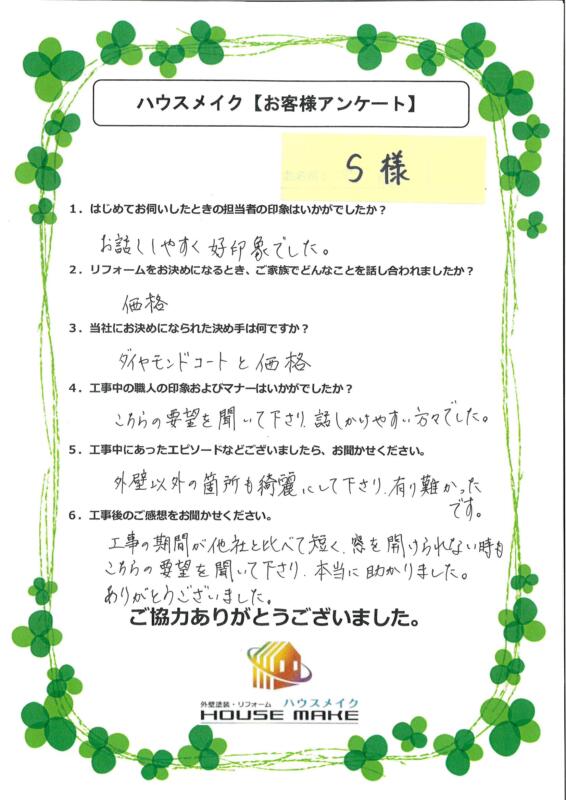 ハウスメイク【お客様アンケート】
S様
１．はじめてお伺いしたときの担当者の印象はいかがでしたか？
お話ししやすく好印象でした。
２．リフォームをお決めになるとき、ご家族でどんなことを話し合われましたか？
価格
３．当社にお決めになられた決め手は何ですか？
ダイヤモンドコートと価格
４．工事中の職人の印象およびマナーはいかがでしたか？
こちらの要望を聞いて下さり、話しかけやすい方々でした。
５．工事中にあったエピソードなどございましたら、お聞かせください。
外壁以外の箇所も綺麗にして下さり、有り難かった
です。
６．工事後のご感想をお聞かせください。
工事の期間が他社と比べて短く、窓を開けられない時も
こちらの要望を聞いて下さり、本当に助かりました。
ありがとうございました。
ご協力ありがとうございました。
外壁塗装・リフォーム ハウスメイク
HOUSE MAKE